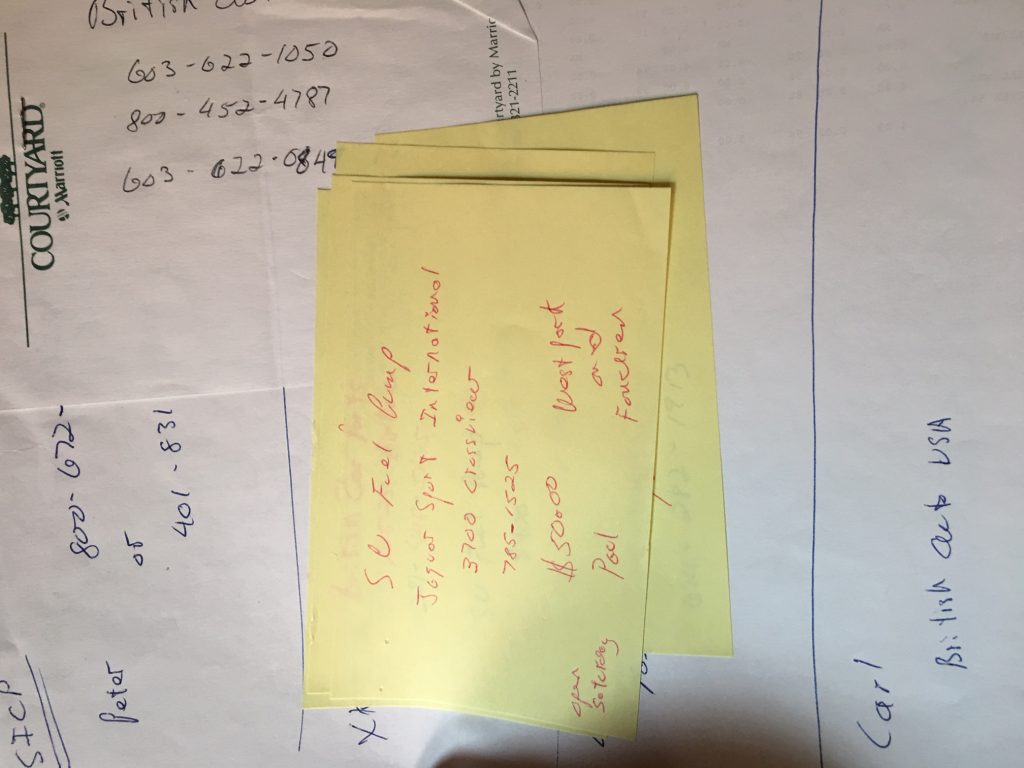 British
603-622-1050
800-452-4787
603-622-0849
COURTYARD
Marriott
rtyard by Marrio
321-2211
SICP
Peter 800-672-
or
401-831
SU Fuel Pump
Jaguar Sport International
3700 Crossview
785-1525
$50.00 West park
and
Paul Fondren
open
Saterday
Carl
British Auto USA